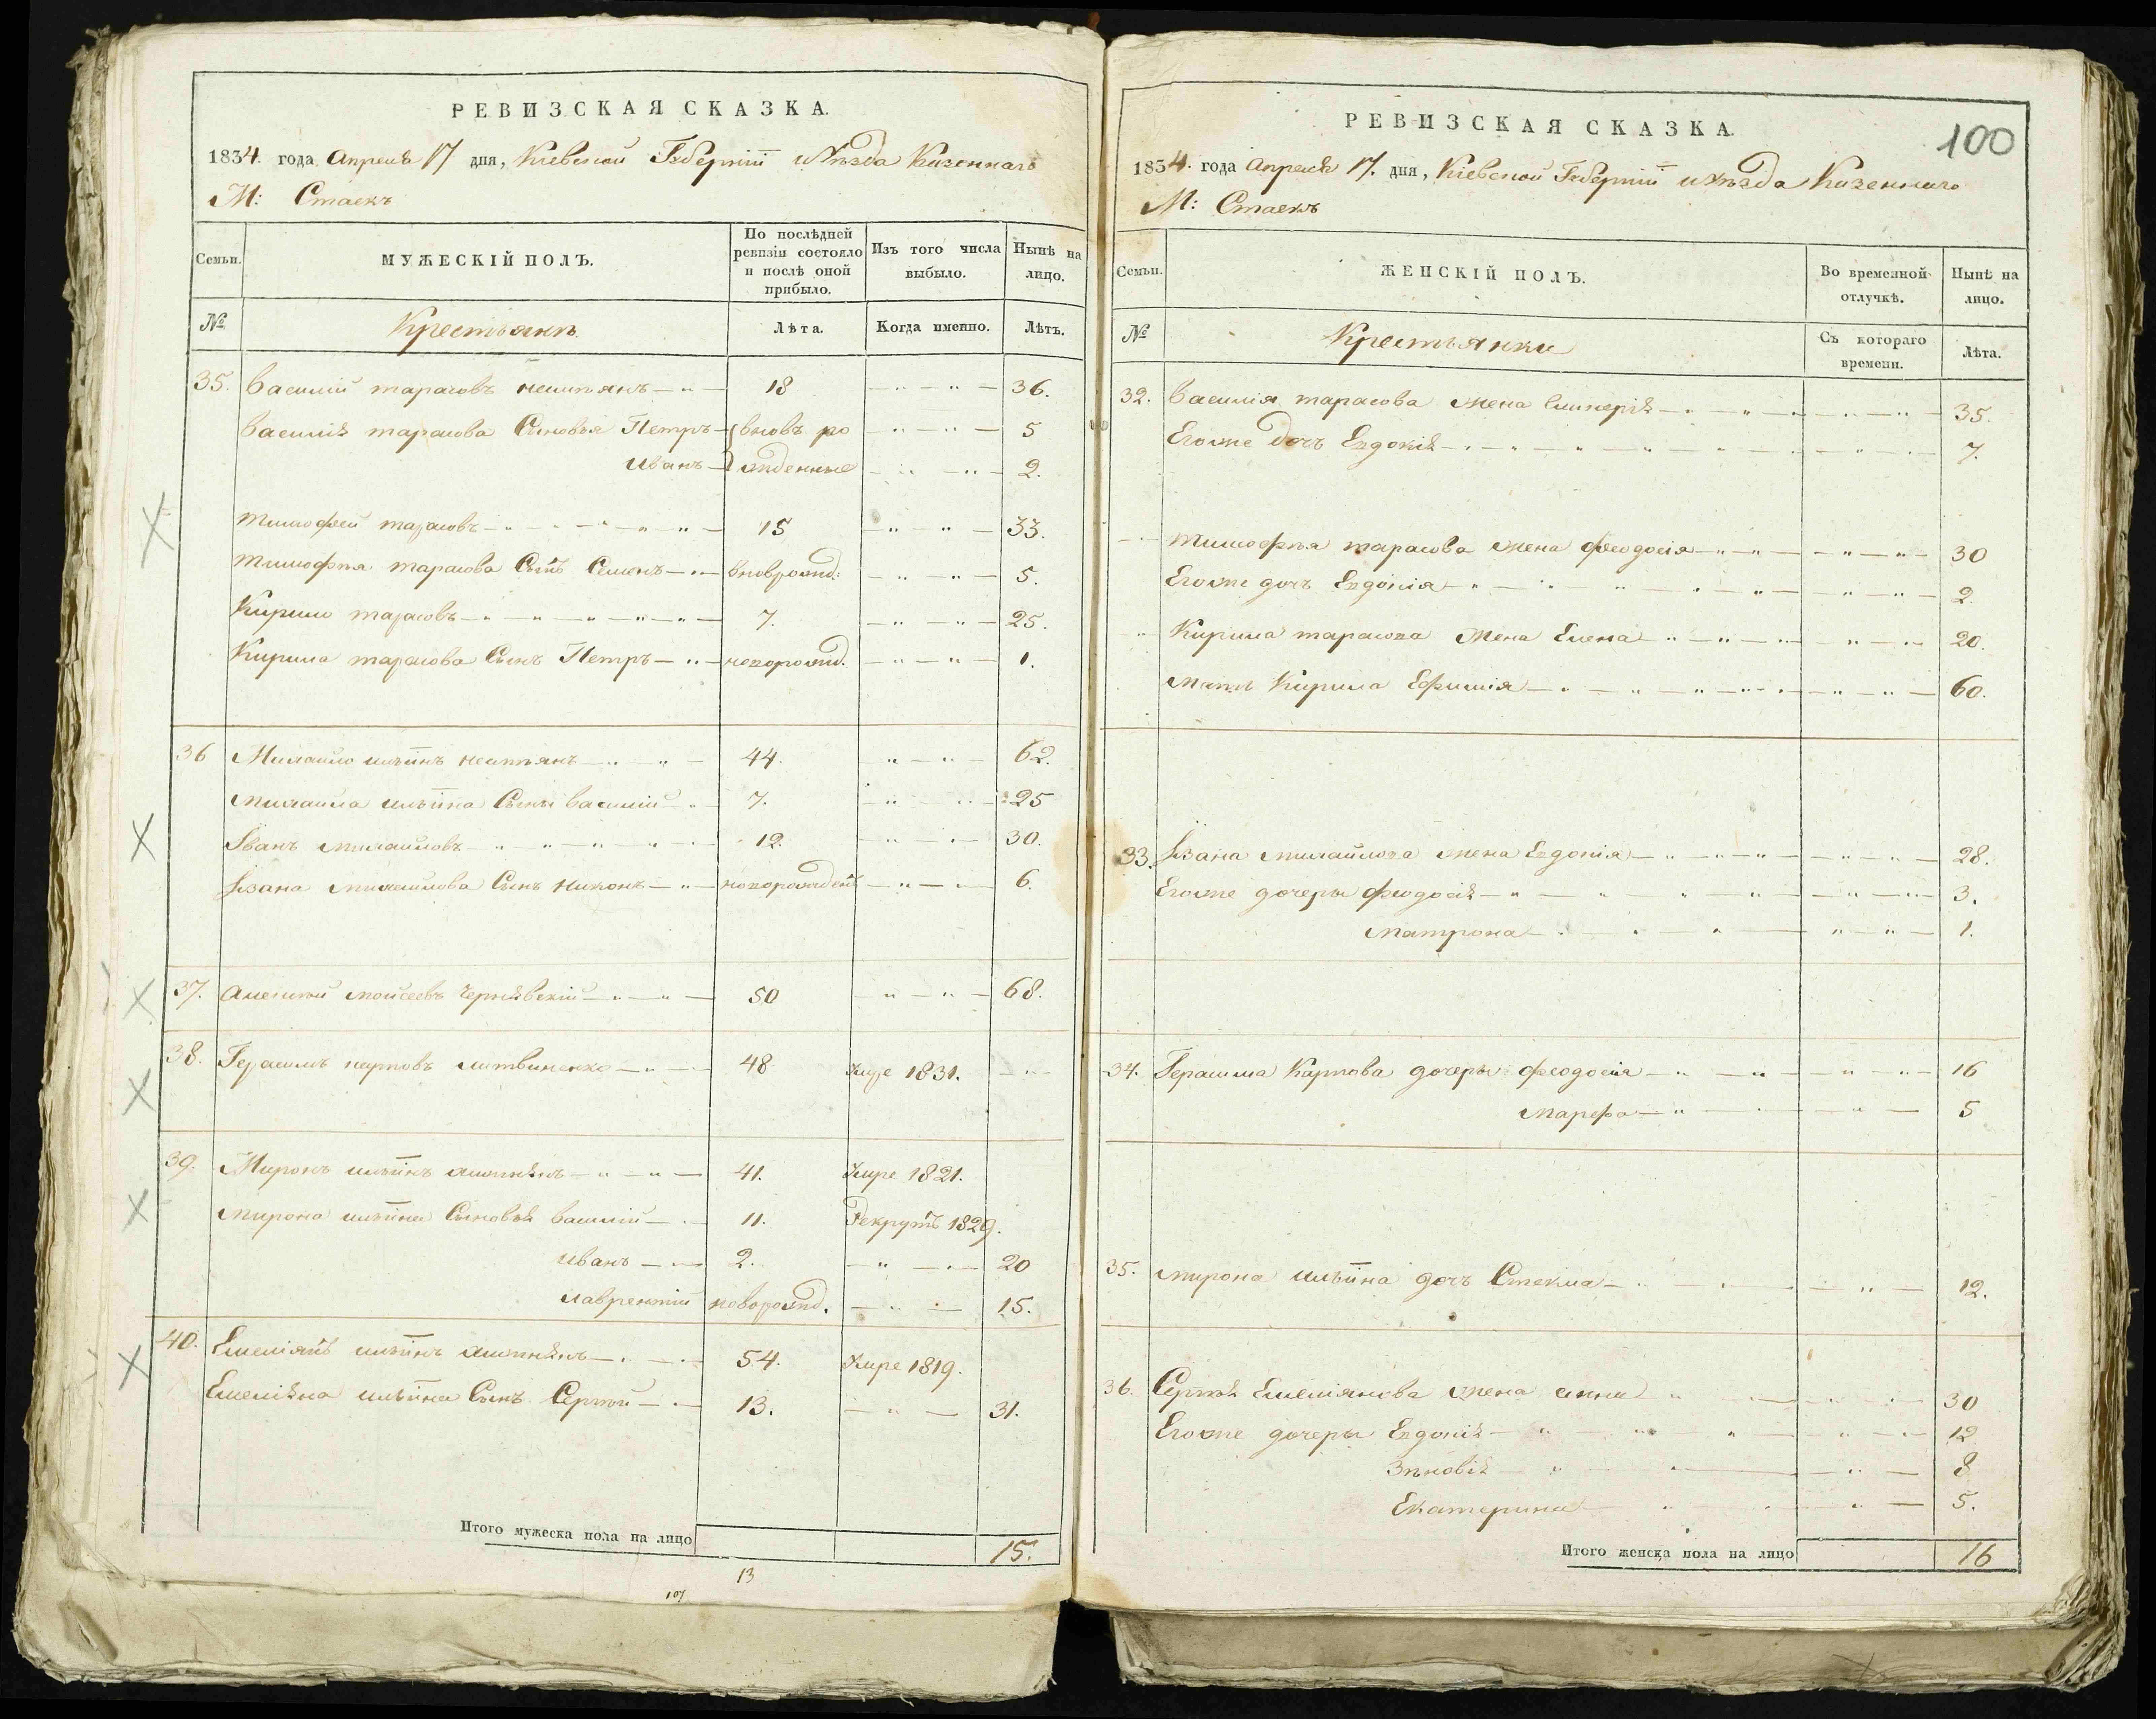 РЕВИЗСКАЯ СКАЗКА.
1834. года Апреля 17 дня, Кіевской Губерніи и Уѣзда Казеннаго
М: Стаекъ
Семьи.
МУЖЕСКІЙ ПОЛЪ.
По послѣдней ревизіи состояло и послѣ оной прибыло.
Изъ того числа выбыло.
Нынѣ на лицо.
№
Крестьянъ
Лѣта.
Когда именно.
Лѣтъ.
35. Василий тарасовъ 18 36.
Василія тарасова Сыновья Петръ вновь ро 5
Иванъ жденные 2.
тимофей тарасовъ 15 33.
тимофѣя тарасова Сынъ Семенъ вноврожд: 5.
Кирило тарасовъ 7. 25.
Кирила тарасова Сынъ Петръ новорожд. 1.
36 Михайло ильинъ 44. 62.
михайла ильина Сынъ василий 7. 25
Іванъ михайловъ 12. 30.
Івана михайлова Сынъ никонъ новорожден 6.
37. алексей моисеевъ Чернявский 50 68.
38. Герасимъ карповъ литвиненко 48 Умре 1831.
39. Миронъ ильинъ 41. Умре 1821.
мирона ильина Сыновья василий 11. Рекрутъ 1829.
иванъ 2. 20
лаврентий новорожд. 15.
40. Емеліянъ ильинъ 54. Умре 1819.
Емеляна ильина Сынъ Сергей 13. 31.
Итого мужеска пола на лицо 15.
13
107
РЕВИЗСКАЯ СКАЗКА.
100
1834. года Апреля 17. дня, Кіевской Губерніи и Уѣзда Казеннаго
М: Стаекъ
Семьи.
ЖЕНСКІЙ ПОЛЪ.
Во временной отлучкѣ.
Нынѣ на лицо.
№
Крестьянки
Съ котораго времени.
Лѣта.
32. Василія тарасова жена 35.
Егоже дочъ Евдокія 7.
тимофѣя тарасова жена феодосія 30
Егоже дочъ Евдокія 2.
Кирила тарасова жена Елена 20.
мать Кирила Ефимія 60.
33. Івана михайлова жена Евдокія 28.
Егоже дочеры феодосія 3.
матрона 1.
34. Герасима Карпова дочеры феодосія 16
марефа 5
35. мирона ильина дочъ Стекла 12.
36. Сергея Емелянова жена анна 30
Егоже дочеры Евдокія 12
Зѣновія 8
Екатерина 5.
Итого женска пола на лицо 16